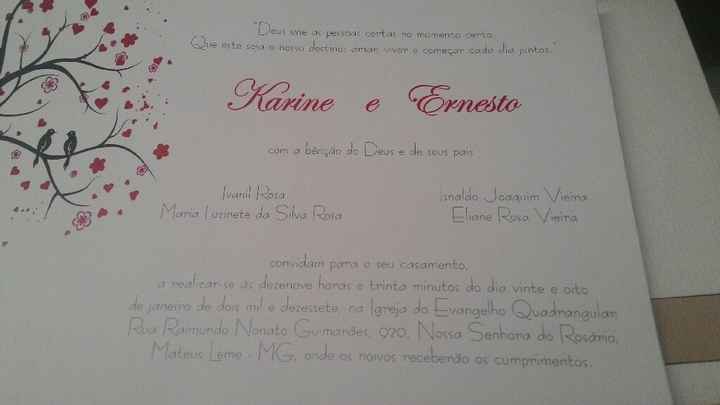 "Deus une as pessoas certas no momento certo.
Que este seja o nosso destino: amar, viver e começar cada dia juntos."
Karine e Ernesto
com a bênção de Deus e de seus pais
Ivanil Rosa
Maria Luzinete da Silva Rosa
Joaquim Vieira
Eliane Rosa Vieira
convidam para o seu casamento,
a realizar-se às dezenove horas e trinta minutos do dia vinte e oito
de janeiro de dois mil e dezessete, na Igreja do Evangelho Quadrangular,
Rua Raimundo Nonato Guimarães, 920, Nossa Senhora do Rosário,
Mateus Leme - MG, onde os noivos receberão os cumprimentos.